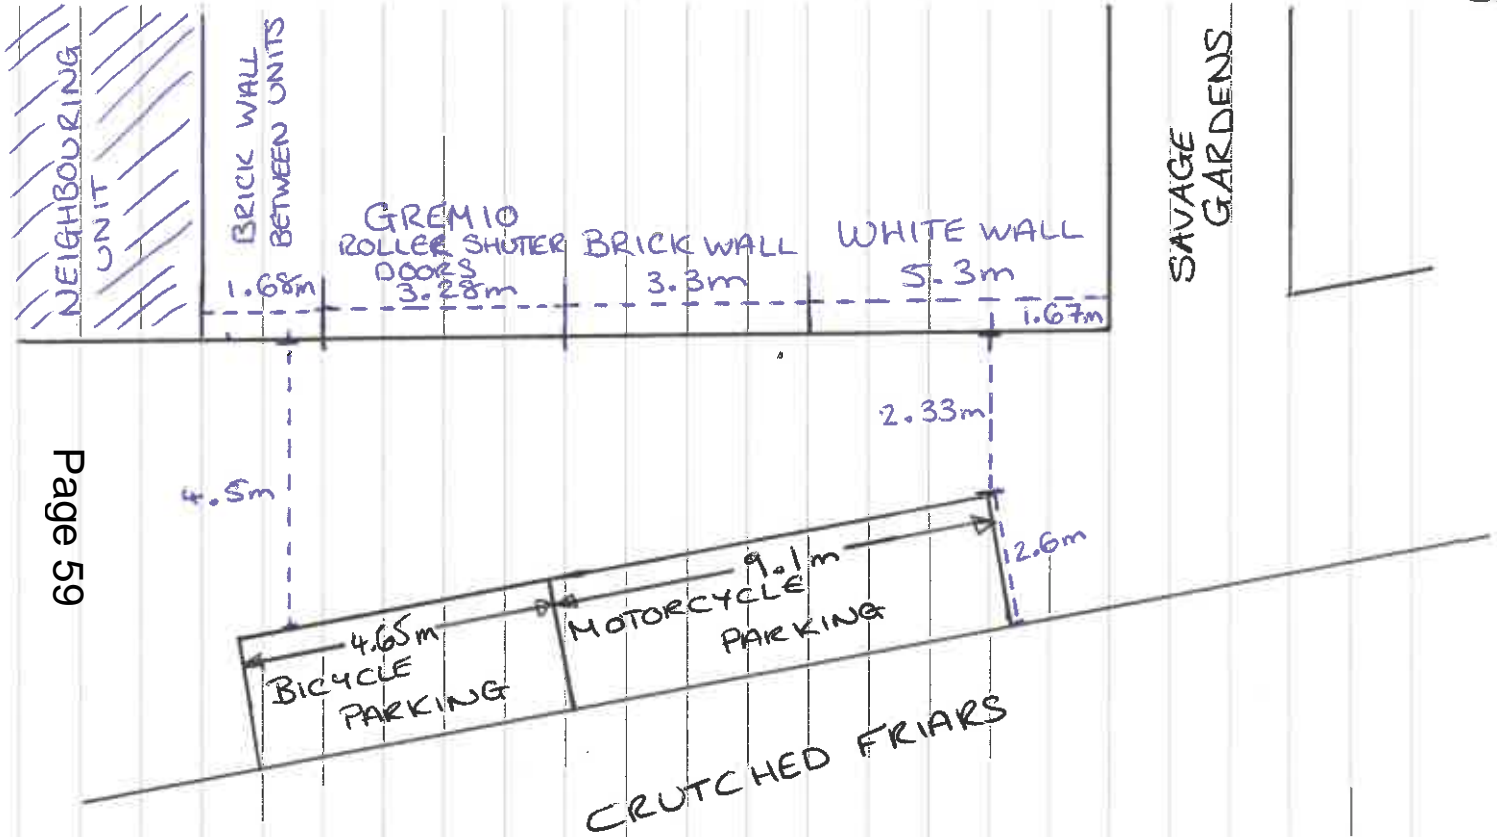 NEIGHBOURING
UNIT
BRICK WALL
BETWEEN UNITS
1.68m
GREMIO
ROLLER SHUTER
DOORS
3.28m
BRICK WALL
3.3m
WHITE WALL
5.3m
1.67m
SAVAGE
GARDENS
2.33m
4.5m
Page 59
2.6m
9.1m
MOTORCYCLE
PARKING
4.65m
BICYCLE
PARKING
CRUTCHED FRIARS